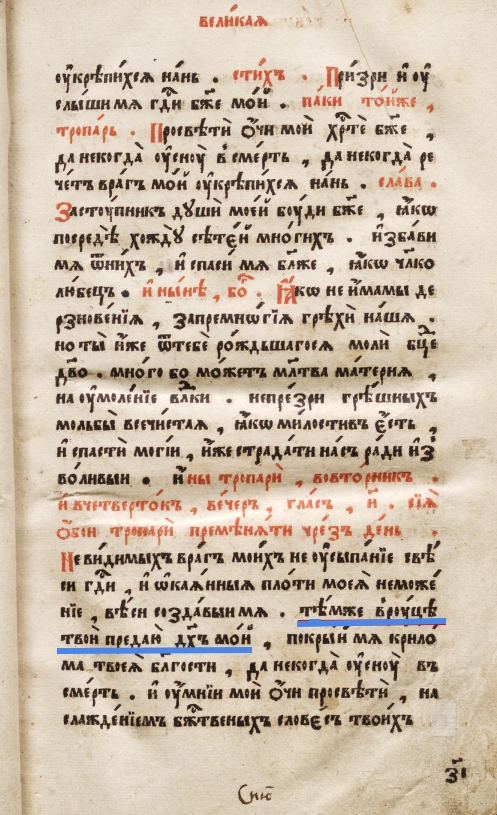 вели́каѧ
ѹ҆крѣпи́хсѧ на́нь . сти́хъ . При́зри и҆ ѹ҆
слы́ши мѧ гдⷭ҇и бж҃е мо́й . па́ки то́йже ,
тропа́рь . Просвѣтѝ ѻ҆́чи мои̑ хрⷭ҇те бж҃е ,
да некогда̀ ѹ҆снѹ̀ в̾ сме́рть , да некогда̀ ре
че́тъ вра́гъ мо́й ѹ҆крѣпи́хсѧ на́нь . сла́ва .
Застѹ́пникъ дѹшѝ мое́й бѹ́ди бж҃е , ꙗ҆́кѡ
посредѣ̀ хождѹ̀ сѣте́й мно́гихъ . и҆зба́ви
мѧ ѿ ни́хъ , и҆ спаси́ мѧ бл҃же , ꙗ҆́кѡ чл҃ко
лю́бецъ . и҆ ны́нѣ , бо҃ . Ꙗ҆́кѡ не и҆́мамы де
рзнове́нїѧ , за премно́гїѧ грѣхѝ на́шѧ .
но ты̀ и҆́же ѿ тебѐ ро́ждьшагосѧ молѝ бцⷣе
дв҃о . мно́го бо мо́жетъ мл҃тва ма́тернѧ ,
на ѹ҆моле́нїе влⷣки . непре́зри грѣ́шныхъ
мольбы̀ всечи́стаѧ , ꙗ҆́кѡ ми́лостивъ є҆́сть ,
и҆ спастѝ могі́и , и҆́же страда́ти на́съ ра́ди и҆з̾
во́ливыи . и҆ны тропарѝ , во вто́рникъ .
и҆ в четверто́къ , ве́черъ , гла́съ , и҃ . сїѧ̀
ѻ҆́бои тропарѝ премѣнѧ́ти чре́зъ де́нь .
Неви́димыхъ вра́гъ мои́хъ не ѹ҆сыпа́нїе свѣ́
си гдⷭ҇и , и҆ ѡ҆каѧ́нныѧ пло́ти моеѧ̀ неможе́
нїе , вѣ́си созда́выи мѧ . тѣ́мже в̾ рѹ́цѣ
твоѝ предаю̀ дх҃ъ мо́й , покры́й мѧ крило́
ма твоеѧ̀ бл҃гости , да некогда̀ ѹ҆снѹ̀ въ
сме́рть . и҆ ѹ҆́мнїи мои̑ ѻ҆́чи просвѣтѝ , на
слажде́нїемъ бжⷭ҇твеныхъ слове́съ твои́хъ
з҃і